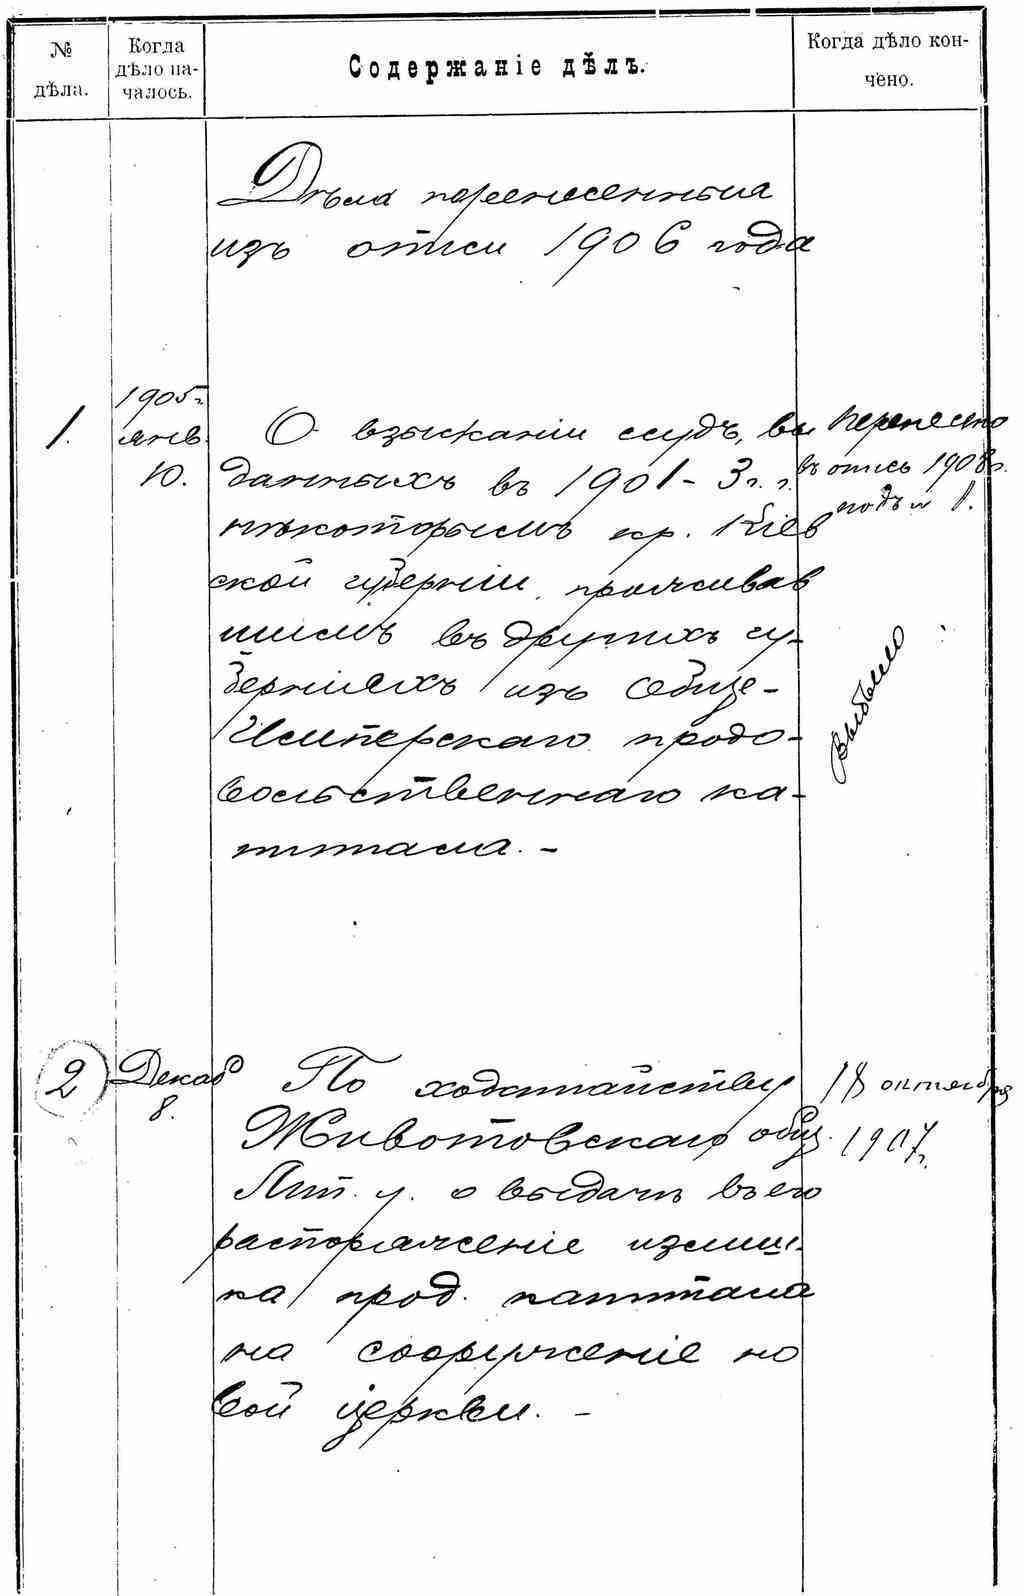 № дѣла.
Когда
дѣло на-
чалось.
Содержаніе дѣлъ.
Когда дѣло кон-
чено.
Дѣла перенесенныя
изъ описи 1906 года
1.
1905 г.
янв.
10.
О взысканіи ссудъ, вы
данныхъ въ 1901-3 г. г.
нѣкоторымъ кр. Кіев
ской губерніи, проживав
шимъ въ другихъ гу-
берніяхъ изъ Обще-
Имперскаго продо-
вольственнаго ка-
питала. -
Перенесено
въ опись 1908 г.
подъ № 1.
Выбыло
2
Декаб
8.
По ходатайству
Животовскаго общ.
Лип. у. о выдачѣ въ его
распоряженіе излиш-
ка прод. капитала
на сооруженіе но
вой церкви. -
18 октября
1907 г.